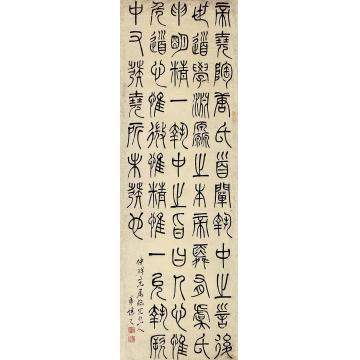 帝堯陶唐氏首闡執中之言後
世道學淵源之本帝舜有虞氏
申明精一執中之旨曰人心惟
危道心惟微惟精惟一允執厥
中又發堯所未發也